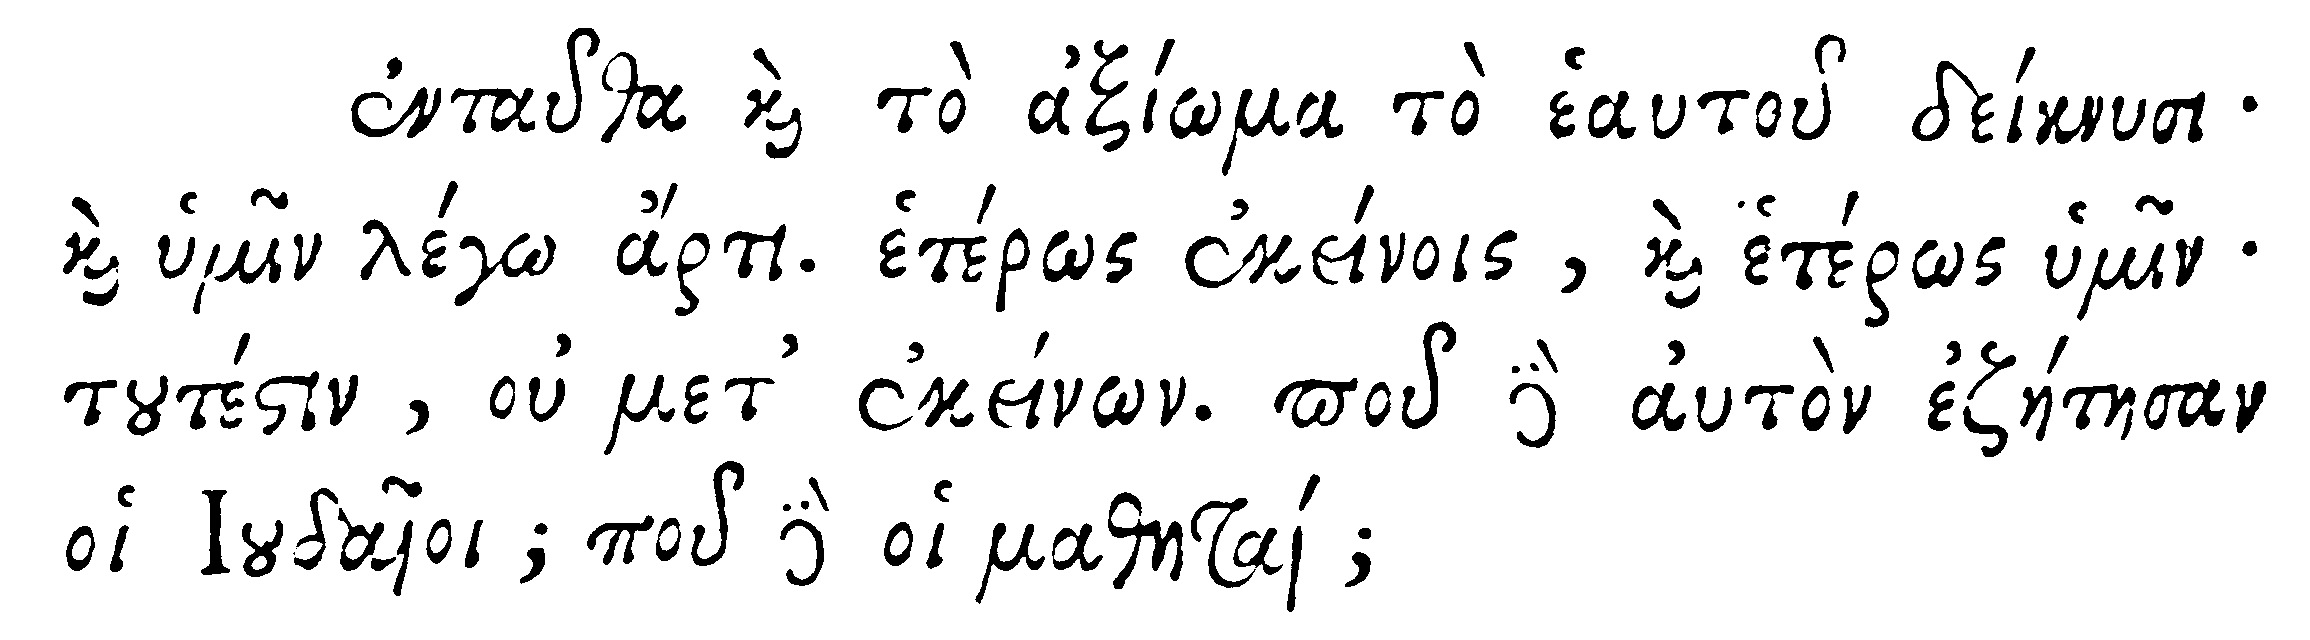 ἐνταῦθα ϗ̀ τὸ ἀξίωμα τὸ ἑαυτοῦ δείκνυσι·
ϗ̀ ὑμῖν λέγω ἄρτι. ἑτέρως ἐκείνοις, ϗ̀ ἑτέρως ὑμῖν·
τȣτέϛιν, οὐ μετ᾽ ἐκείνων. ϖοῦ δὲ ἀυτὸν ἐζήτησαν
οἱ Ιȣδαῖοι; ποῦ δὲ οἱ μαθηταί;